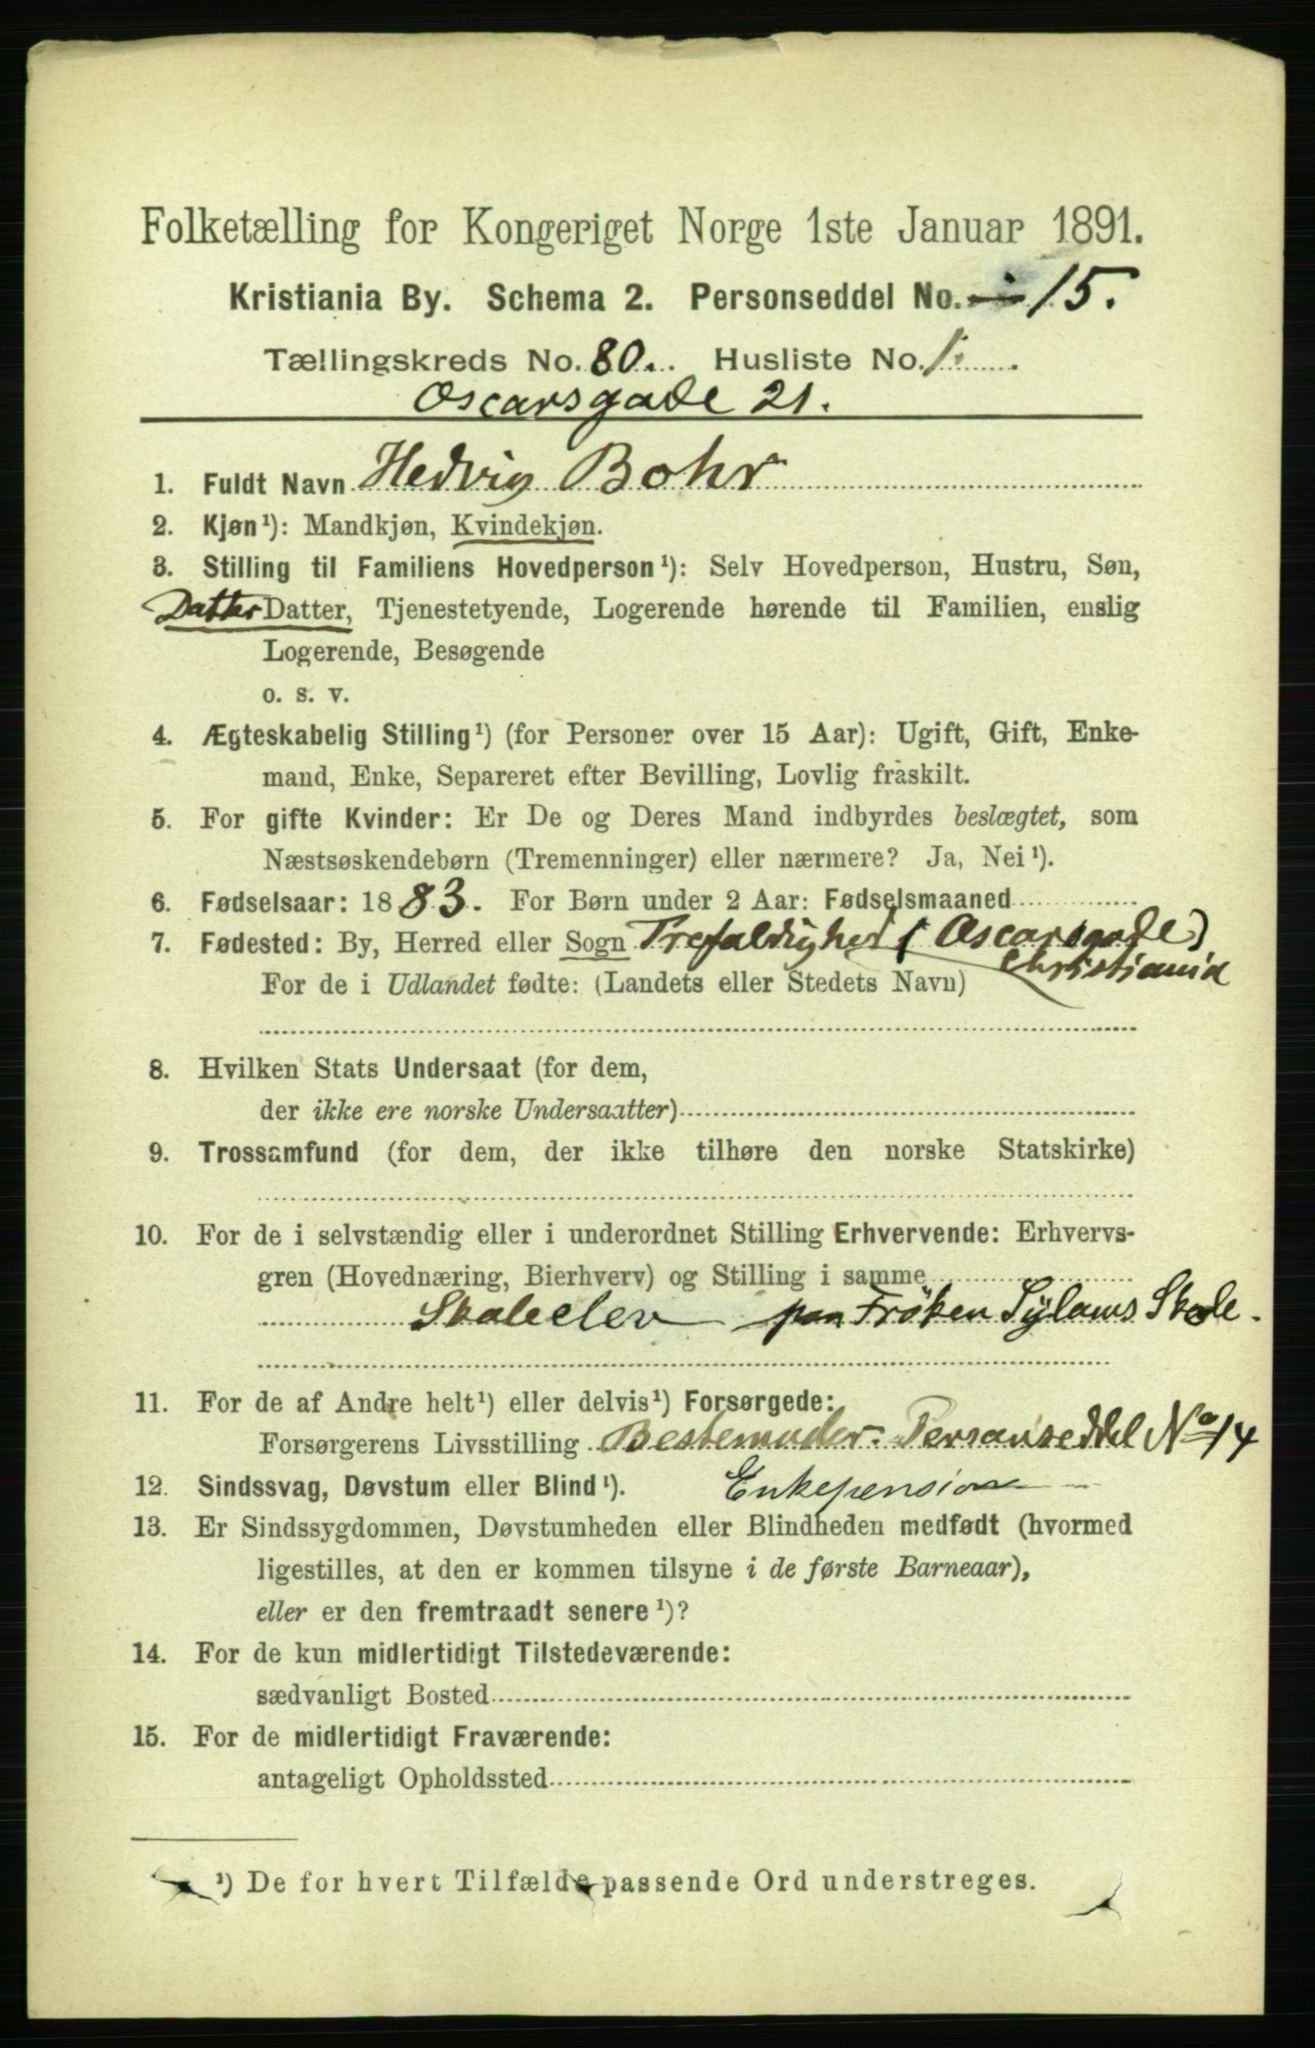 Folketælling for Kongeriget Norge 1ste Januar 1891.
Kristiania By. Schema 2. Personseddel No. 15.
Tællingskreds No. 80. Husliste No. 1.
Oscarsgade 21.
1. Fuldt Navn Hedvig Bohr
2. Kjøn¹): Mandkjøn, Kvindekjøn.
3. Stilling til Familiens Hovedperson¹): Selv Hovedperson, Hustru, Søn,
Datter Datter, Tjenestetyende, Logerende hørende til Familien, enslig
Logerende, Besøgende
o. s. v.
4. Ægteskabelig Stilling¹) (for Personer over 15 Aar): Ugift, Gift, Enke-
mand, Enke, Separeret efter Bevilling, Lovlig fraskilt.
5. For gifte Kvinder: Er De og Deres Mand indbyrdes beslægtet, som
Næstsøskendebørn (Tremenninger) eller nærmere? Ja, Nei¹).
6. Fødselsaar: 1883. For Børn under 2 Aar: Fødselsmaaned
7. Fødested: By, Herred eller Sogn Trefaldighed (Oscarsgade)
Christiania
For de i Udlandet fødte: (Landets eller Stedets Navn)
8. Hvilken Stats Undersaat (for dem,
der ikke ere norske Undersaatter)
9. Trossamfund (for dem, der ikke tilhøre den norske Statskirke)
10. For de i selvstændig eller i underordnet Stilling Erhvervende: Erhvervs-
gren (Hovednæring, Bierhverv) og Stilling i samme
Skoleelev paa Frøken Sylows Skole.
11. For de af Andre helt¹) eller delvis¹) Forsørgede:
Forsørgerens Livsstilling Bestemoder. Personseddel No 14
12. Sindssvag, Døvstum eller Blind¹). Enkepension
13. Er Sindssygdommen, Døvstumheden eller Blindheden medfødt (hvormed
ligestilles, at den er kommen tilsyne i de første Barneaar),
eller er den fremtraadt senere¹)?
14. For de kun midlertidigt Tilstedeværende:
sædvanligt Bosted
15. For de midlertidigt Fraværende:
antageligt Opholdssted
¹) De for hvert Tilfælde passende Ord understreges.